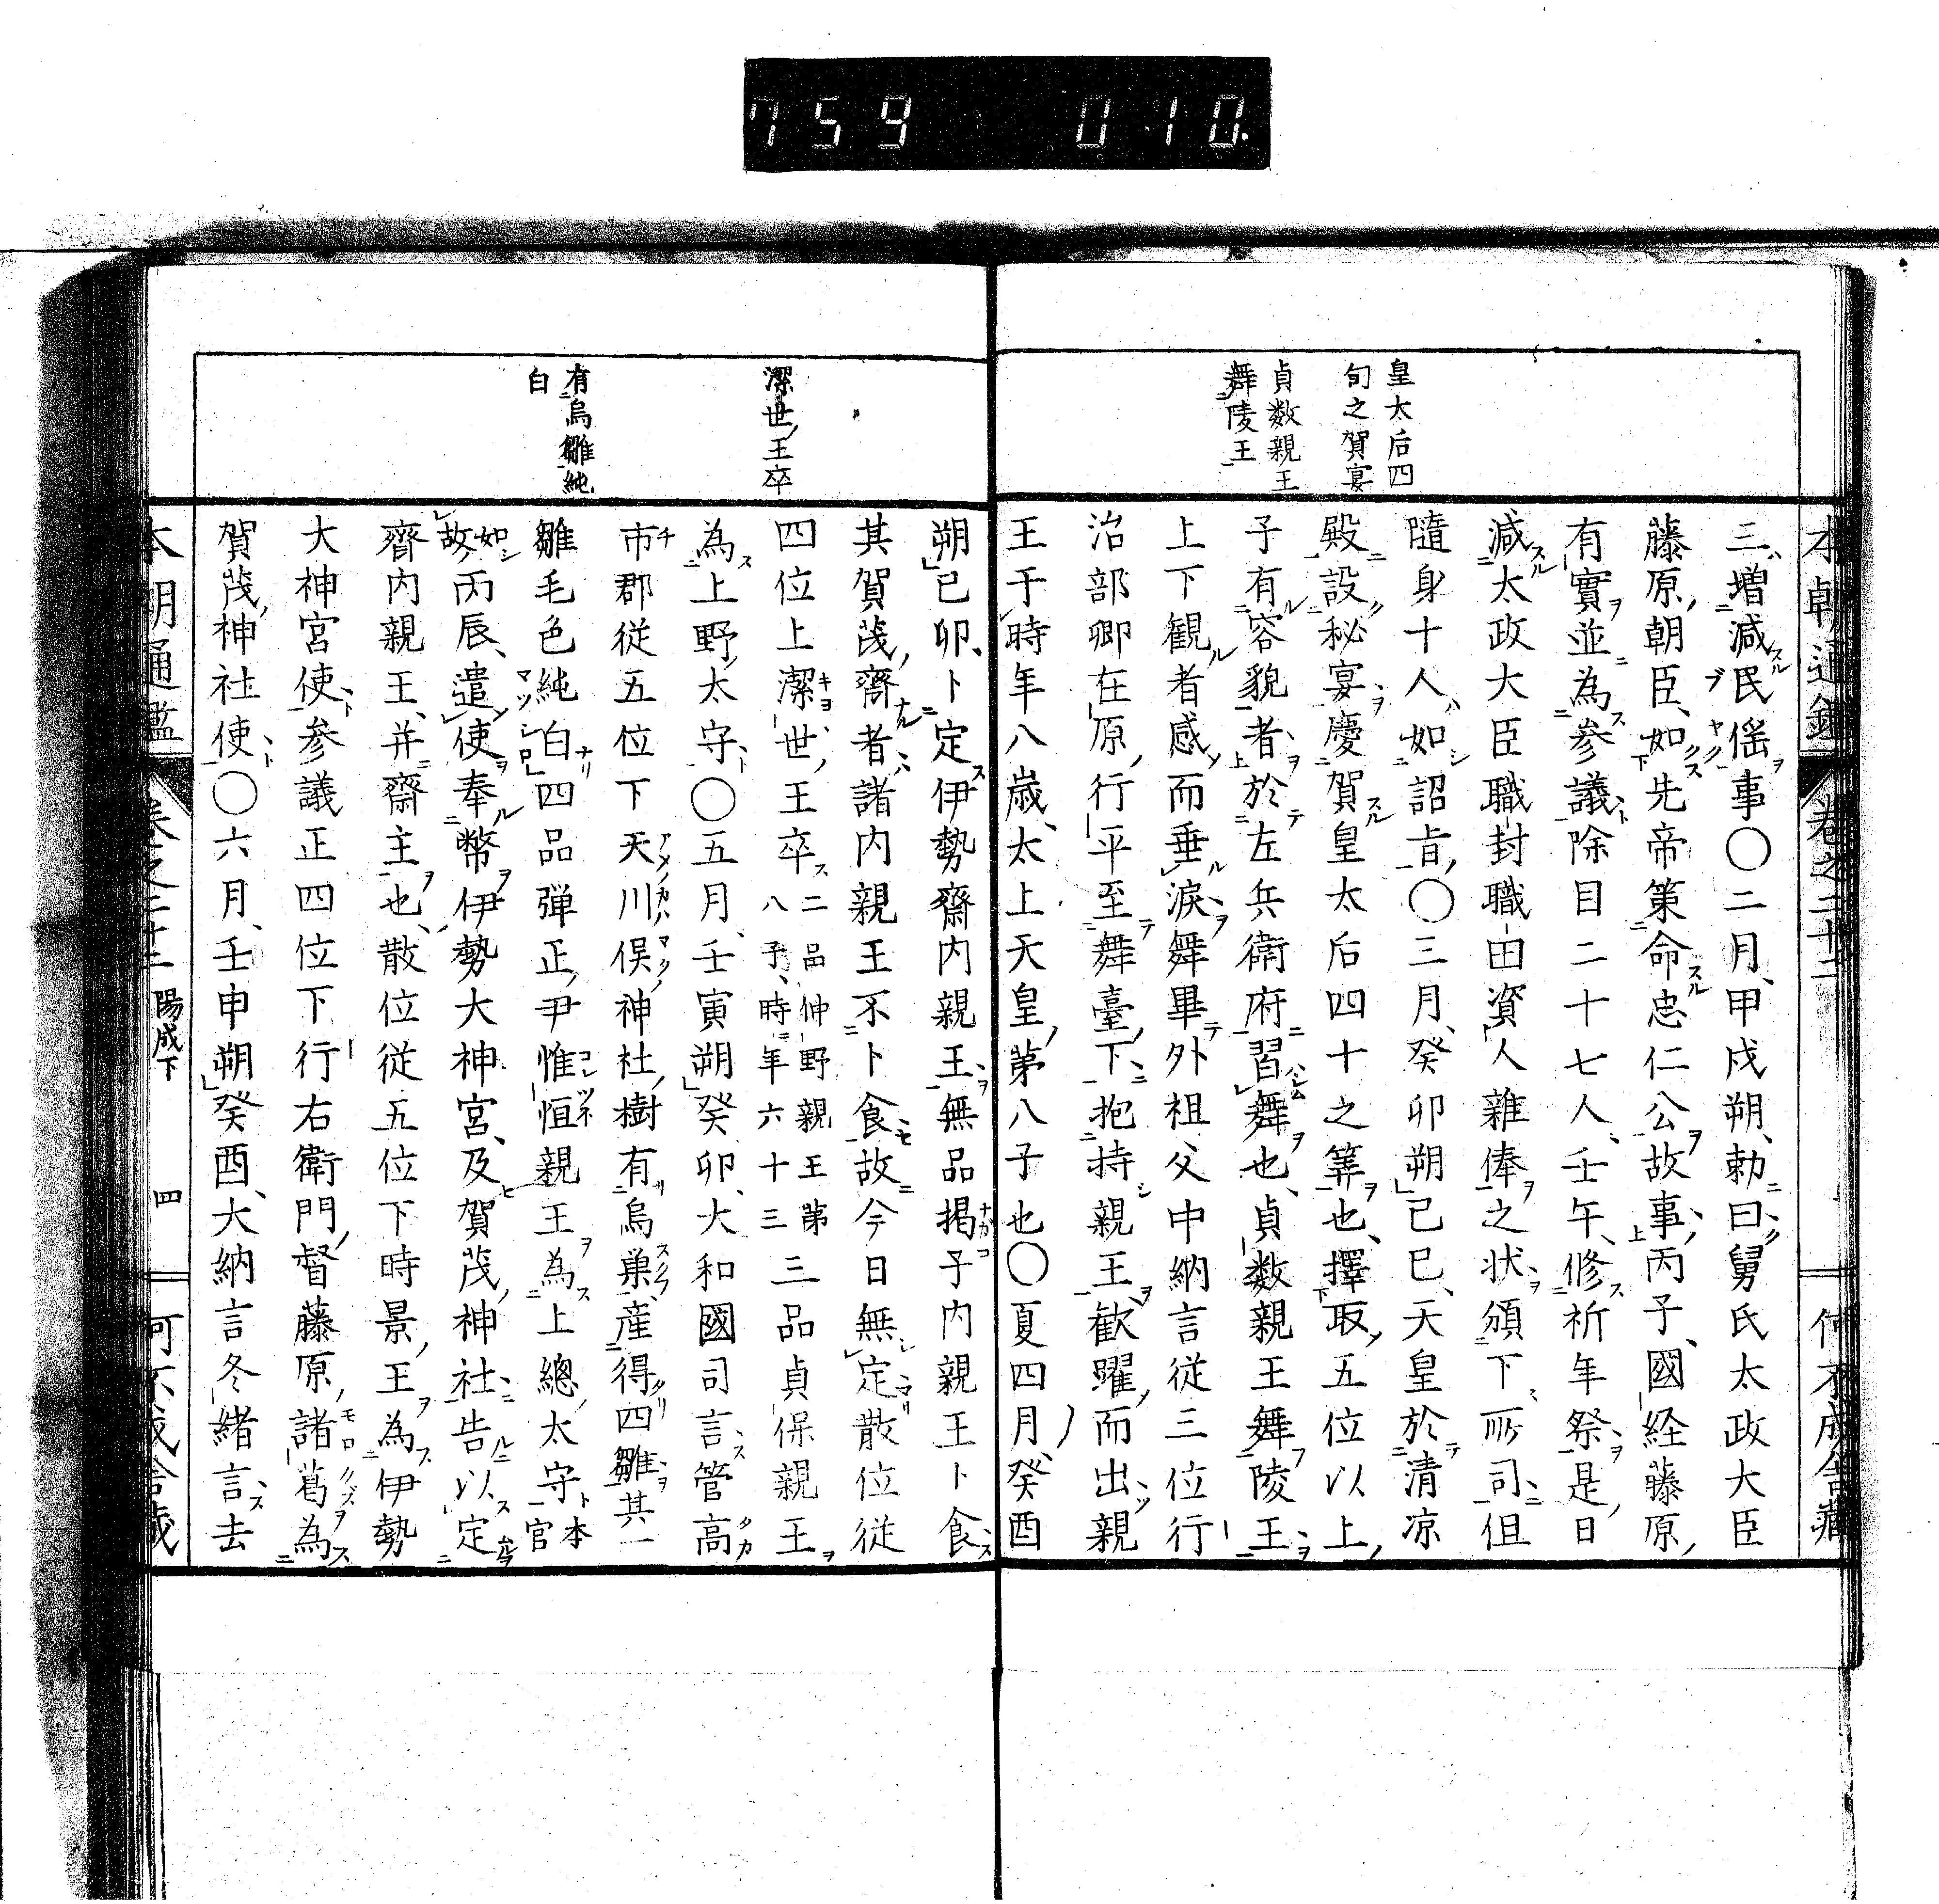 759 010.
皇太后四
旬之賀宴
貞数親王
舞陵王
三増減民徭事〇二月甲戌朔勅曰舅氏太政大臣
藤原朝臣如先帝策命忠仁公故事丙子國経藤原
有實並為参議除目二十七人壬午修祈年祭是日
減太政大臣職封職田資人雑俸之状頒下所司但
隨身十人如詔旨〇三月癸卯朔己巳天皇於清凉
殿設秘宴慶賀皇太后四十之筭也擇取五位以上
子有容貌者於左兵衛府習舞也貞数親王舞陵王
上下観者感而垂淚舞畢外祖父中納言従三位行
治部卿在原行平至舞臺下抱持親王歓躍而出親
王于時年八歳太上天皇第八子也〇夏四月癸酉
潔世王卒
有烏雛純
白
朔己卯卜定伊勢齋内親王無品掲子内親王卜食
其賀茂齋者諸内親王不卜食故今日無定散位従
四位上潔世王卒二品仲野親王第
八子時年六十三三品貞保親王
為上野太守〇五月壬寅朔癸卯大和國司言管高
市郡従五位下天川俣神社樹有烏巣産得四雛其一
雛毛色純白四品弾正尹惟恒親王為上總太守本官
如故丙辰遣使奉幣伊勢大神宮及賀茂神社告以定
齋内親王并齋主也散位従五位下時景王為伊勢
大神宮使参議正四位下行右衛門督藤原諸葛為
賀茂神社使〇六月壬申朔癸酉大納言冬緒言去
本朝通鑑 巻之二十二 陽成下 四